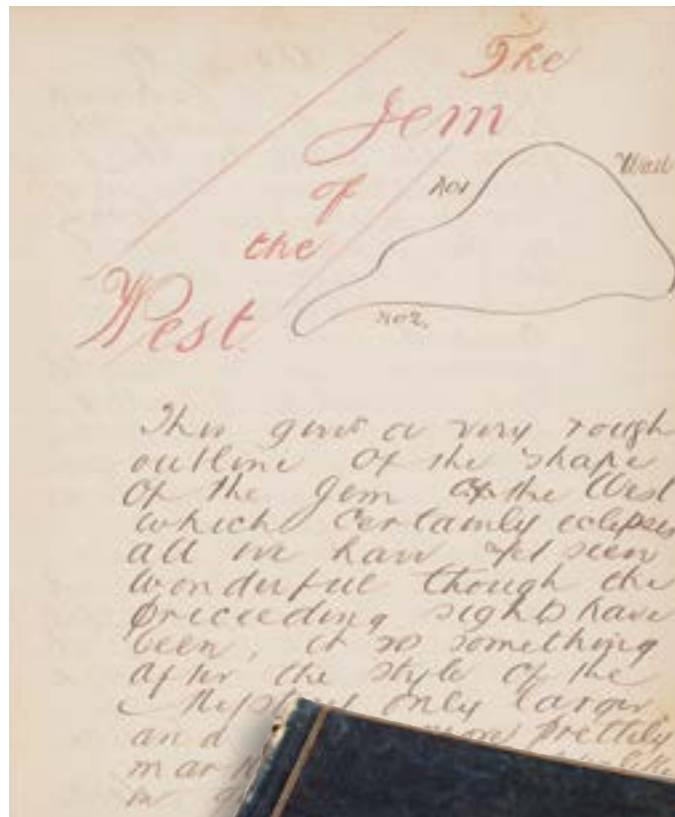 The
Jem
of
the
West
Wall
nor
nor.
This gives a very rough
outline of the shape
of the Jem of the West
which certainly eclipses
all we have yet seen
wonderful though the
preceeding sights have
been, it is something
after the style of the
only larger
and more prettily